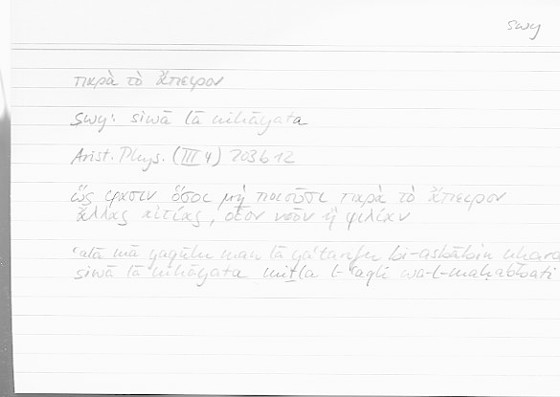 swy
παρὰ τὸ ἄπειρον
swy: siwā lā nihāyata
Arist. Phys. (III 4) 203b12
ὥς φασιν ὅσοι μὴ ποιοῦσι παρὰ τὸ ἄπειρον
ἄλλας αἰτίας, οἷον νοῦν ἢ φιλίαν
ʿalā mā yaqūlu man lā yaʿtarifu bi-asbābin uḫara
siwā lā nihāyata miṯla l-ʿaqli wa-l-maḥabbati